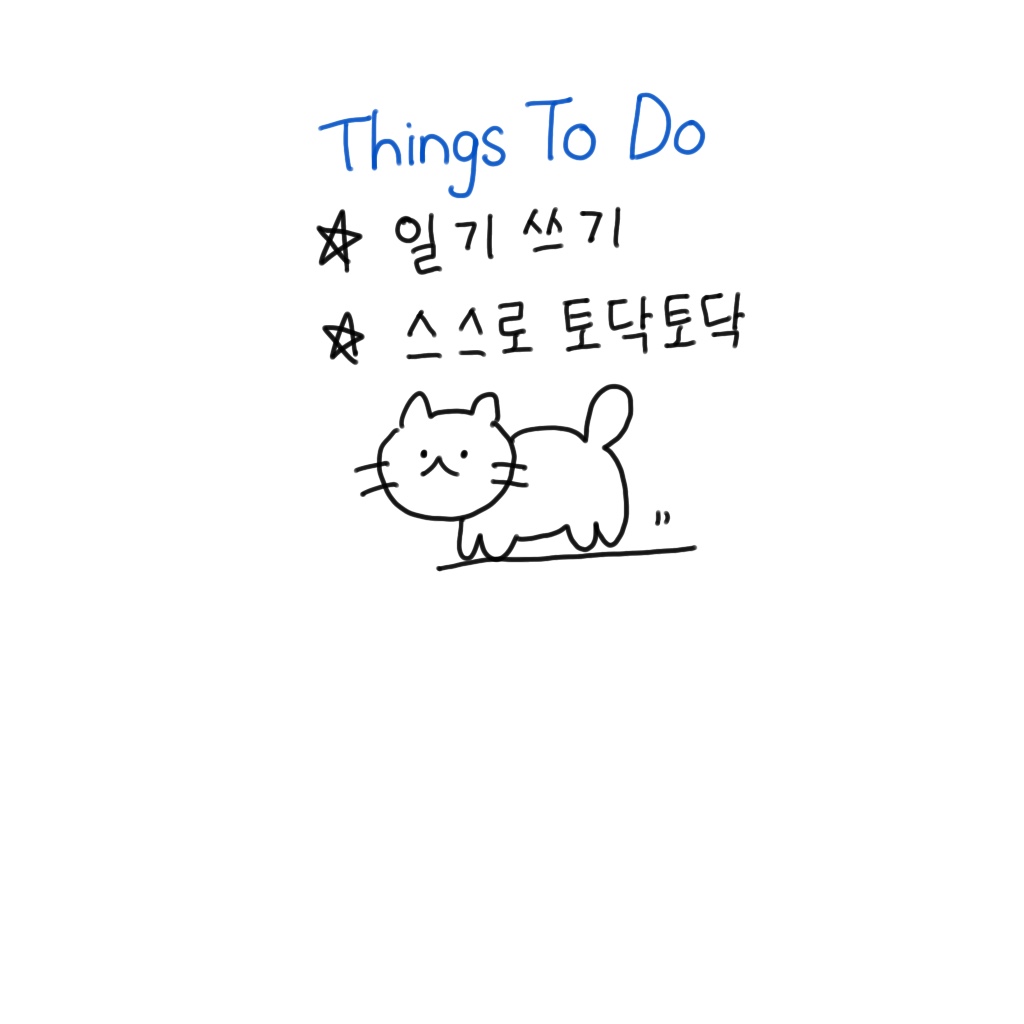 Things To Do
☆ 일기 쓰기
☆ 스스로 토닥토닥